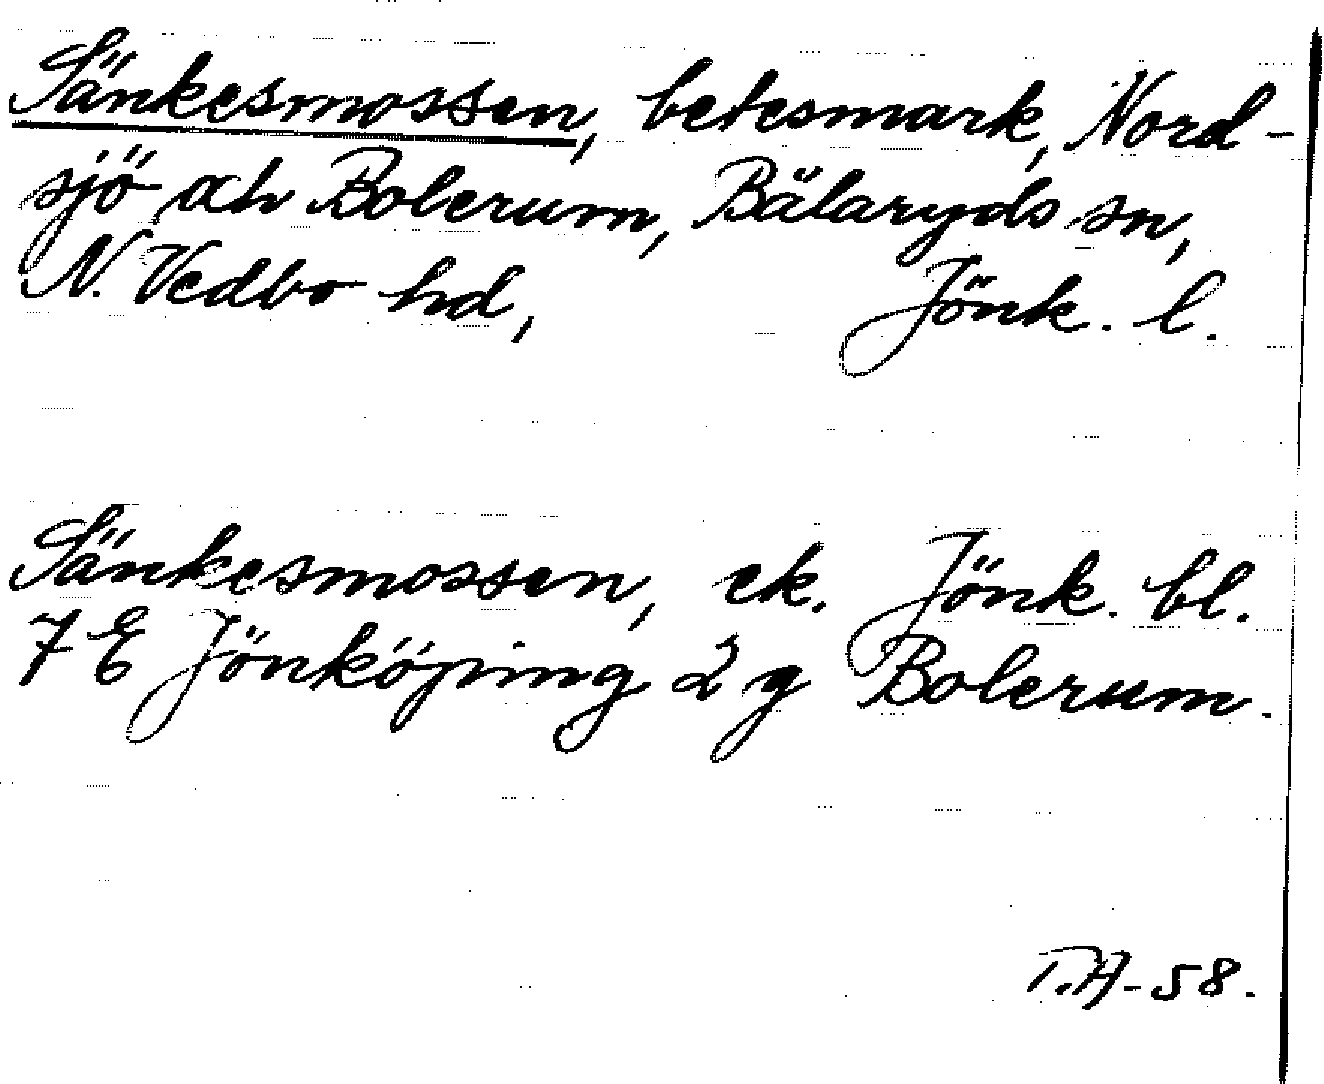 Sänkesmossen, betesmark, Nord-
sjö o̶c̶h̶ Bolerum, Bälaryds sn,
N. Vedbo hd, Jönk. l.
Sänkesmossen, ek. Jönk. bl.
7 E Jönköping 2 g Bolerum.
T.A-58.